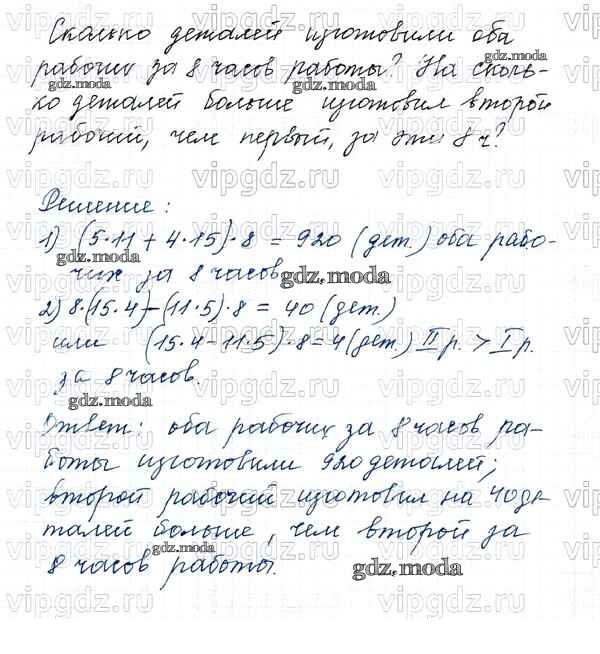 Сколько деталей изготовили оба
рабочих за 8 часов работы? На сколь-
ко деталей больше изготовил второй
рабочий, чем первый, за эти 8 ч?
Решение:
1) (5·11 + 4·15)·8 = 920 (дет.) оба рабо-
чих за 8 часов
2) 8·(15·4)-(11·5)·8 = 40 (дет.)
или (15·4-11·5)·8=4(дет.) II р. > I р.
за 8 часов.
Ответ: оба рабочих за 8 часов ра-
боты изготовили 920 деталей;
второй рабочий изготовил на 40 де-
талей больше, чем второй за
8 часов работы.
vipgdz.ru
gdz.moda